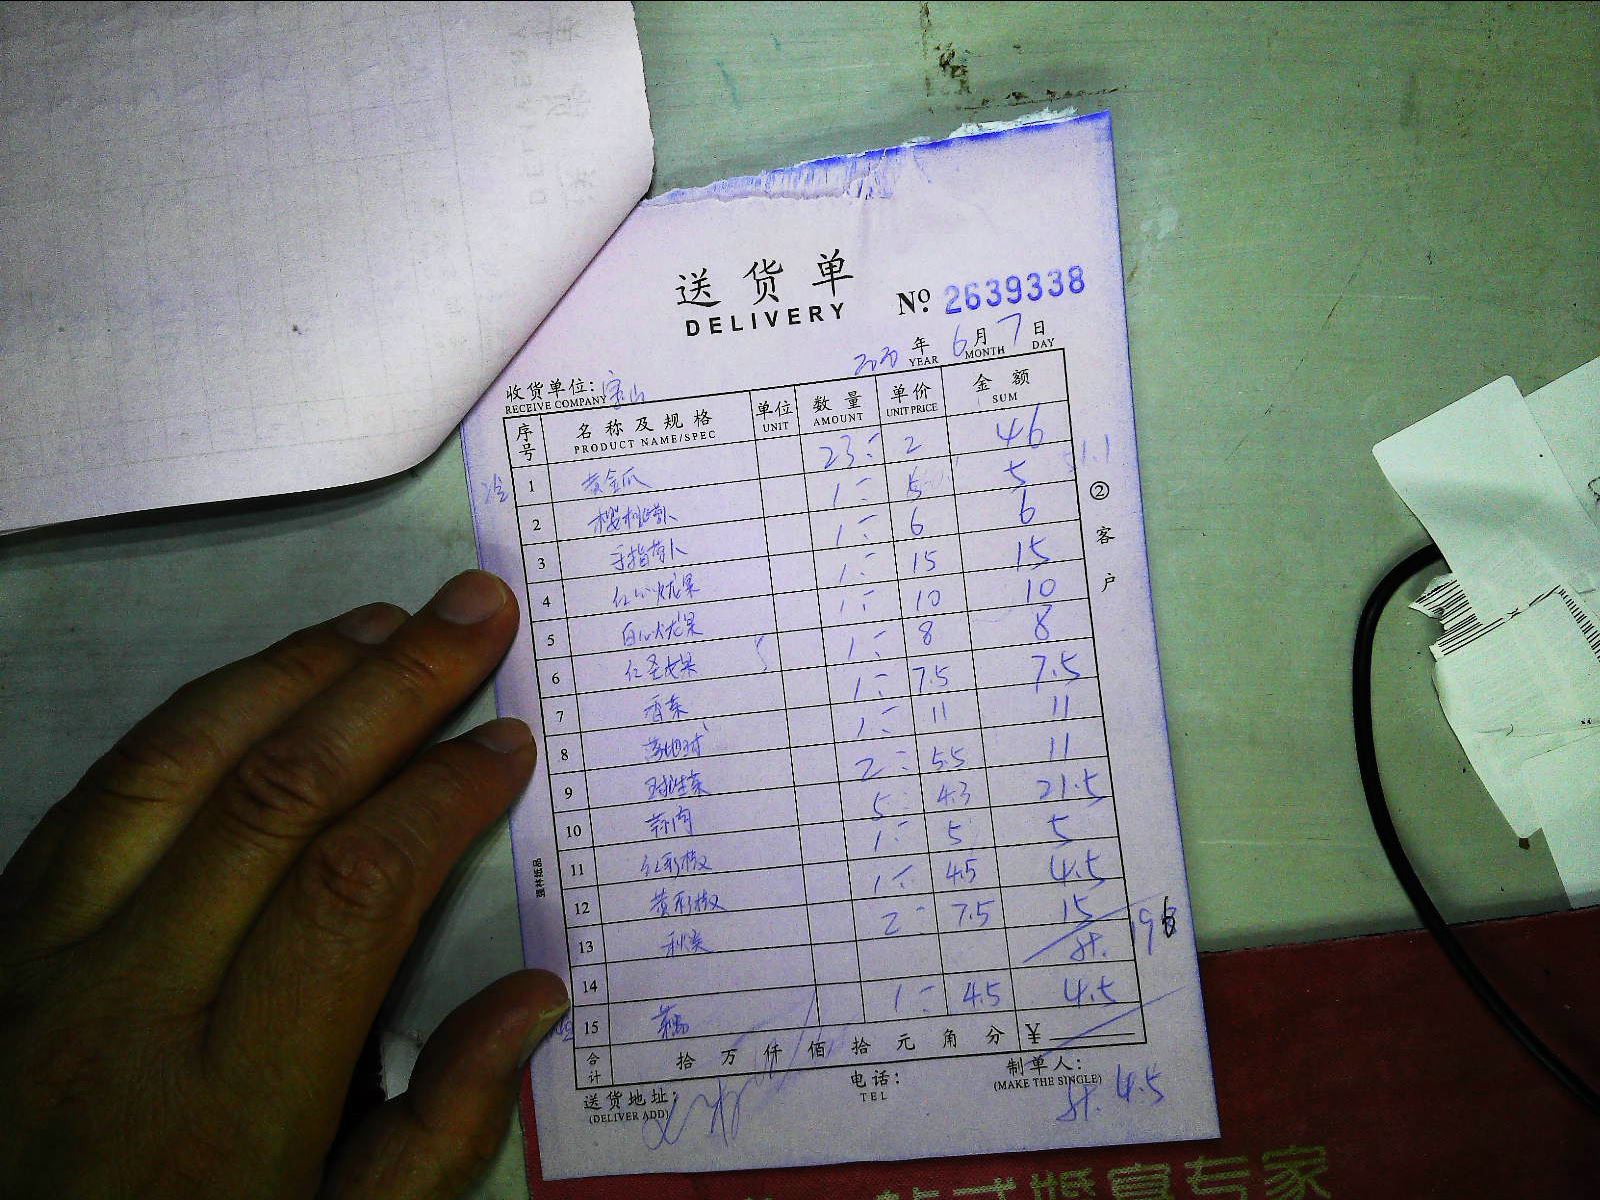 送货单
DELIVERY
№ 2639338
2020 年 6 月 7 日
YEAR MONTH DAY
收货单位: 宝山
RECEIVE COMPANY
序号 名称及规格 单位 数量 单价 金额
PRODUCT NAME/SPEC UNIT AMOUNT UNIT PRICE SUM
1 黄金瓜 23 2 46
2 樱桃萝卜 1 5 5
3 手指萝卜 1 6 6
4 红心火龙果 1 15 15
5 白心火龙果 1 10 10
6 红圣女果 1 8 8
7 香菜 1 7.5 7.5
8 1 11 11
9 球生菜 2 5.5 11
10 蒜肉 5 4.3 21.5
11 红彩椒 1 5 5
12 黄彩椒 1 4.5 4.5
13 秋葵 2 7.5 15
14
15 1 4.5 4.5
合计 拾 万 仟 佰 拾 元 角 分 ¥
送货地址:
(DELIVER ADD)
电话:
TEL
制单人:
(MAKE THE SINGLE)
4.5
② 客户
强林纸品